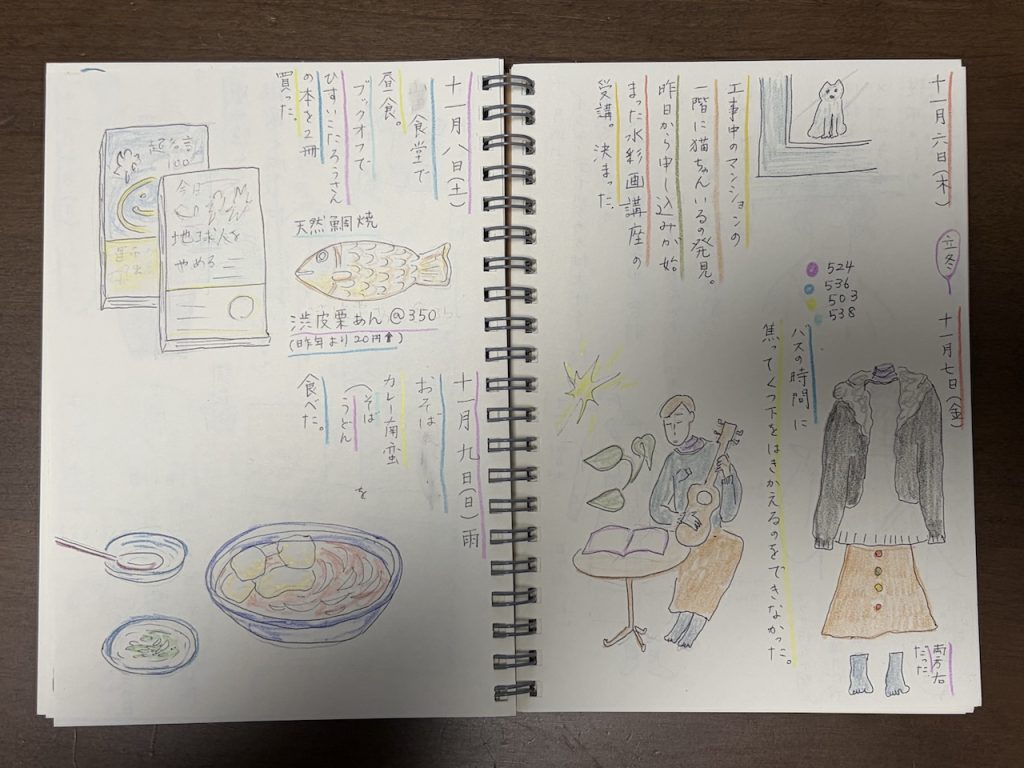 十一月六日(木)
立冬
工事中のマンションの
一階に猫ちゃんいるの発見。
昨日から申し込みが始
まった水彩画講座の
受講。決まった。
524
536
503
538
十一月七日(金)
バスの時間に
焦ってくつ下をはきかえるのをできなかった。
両方右
だった
十一月八日(土)
食堂で
昼食。
ブックオフで
ひすいこたろうさん
の本を2冊
買った。
超名言
100
今日
地球人を
やめる
天然鯛焼
渋皮栗あん@350
(昨年より20円⬆)
十一月九日(日)雨
おそば
カレー南蛮
(そば
うどん
を
食べた。